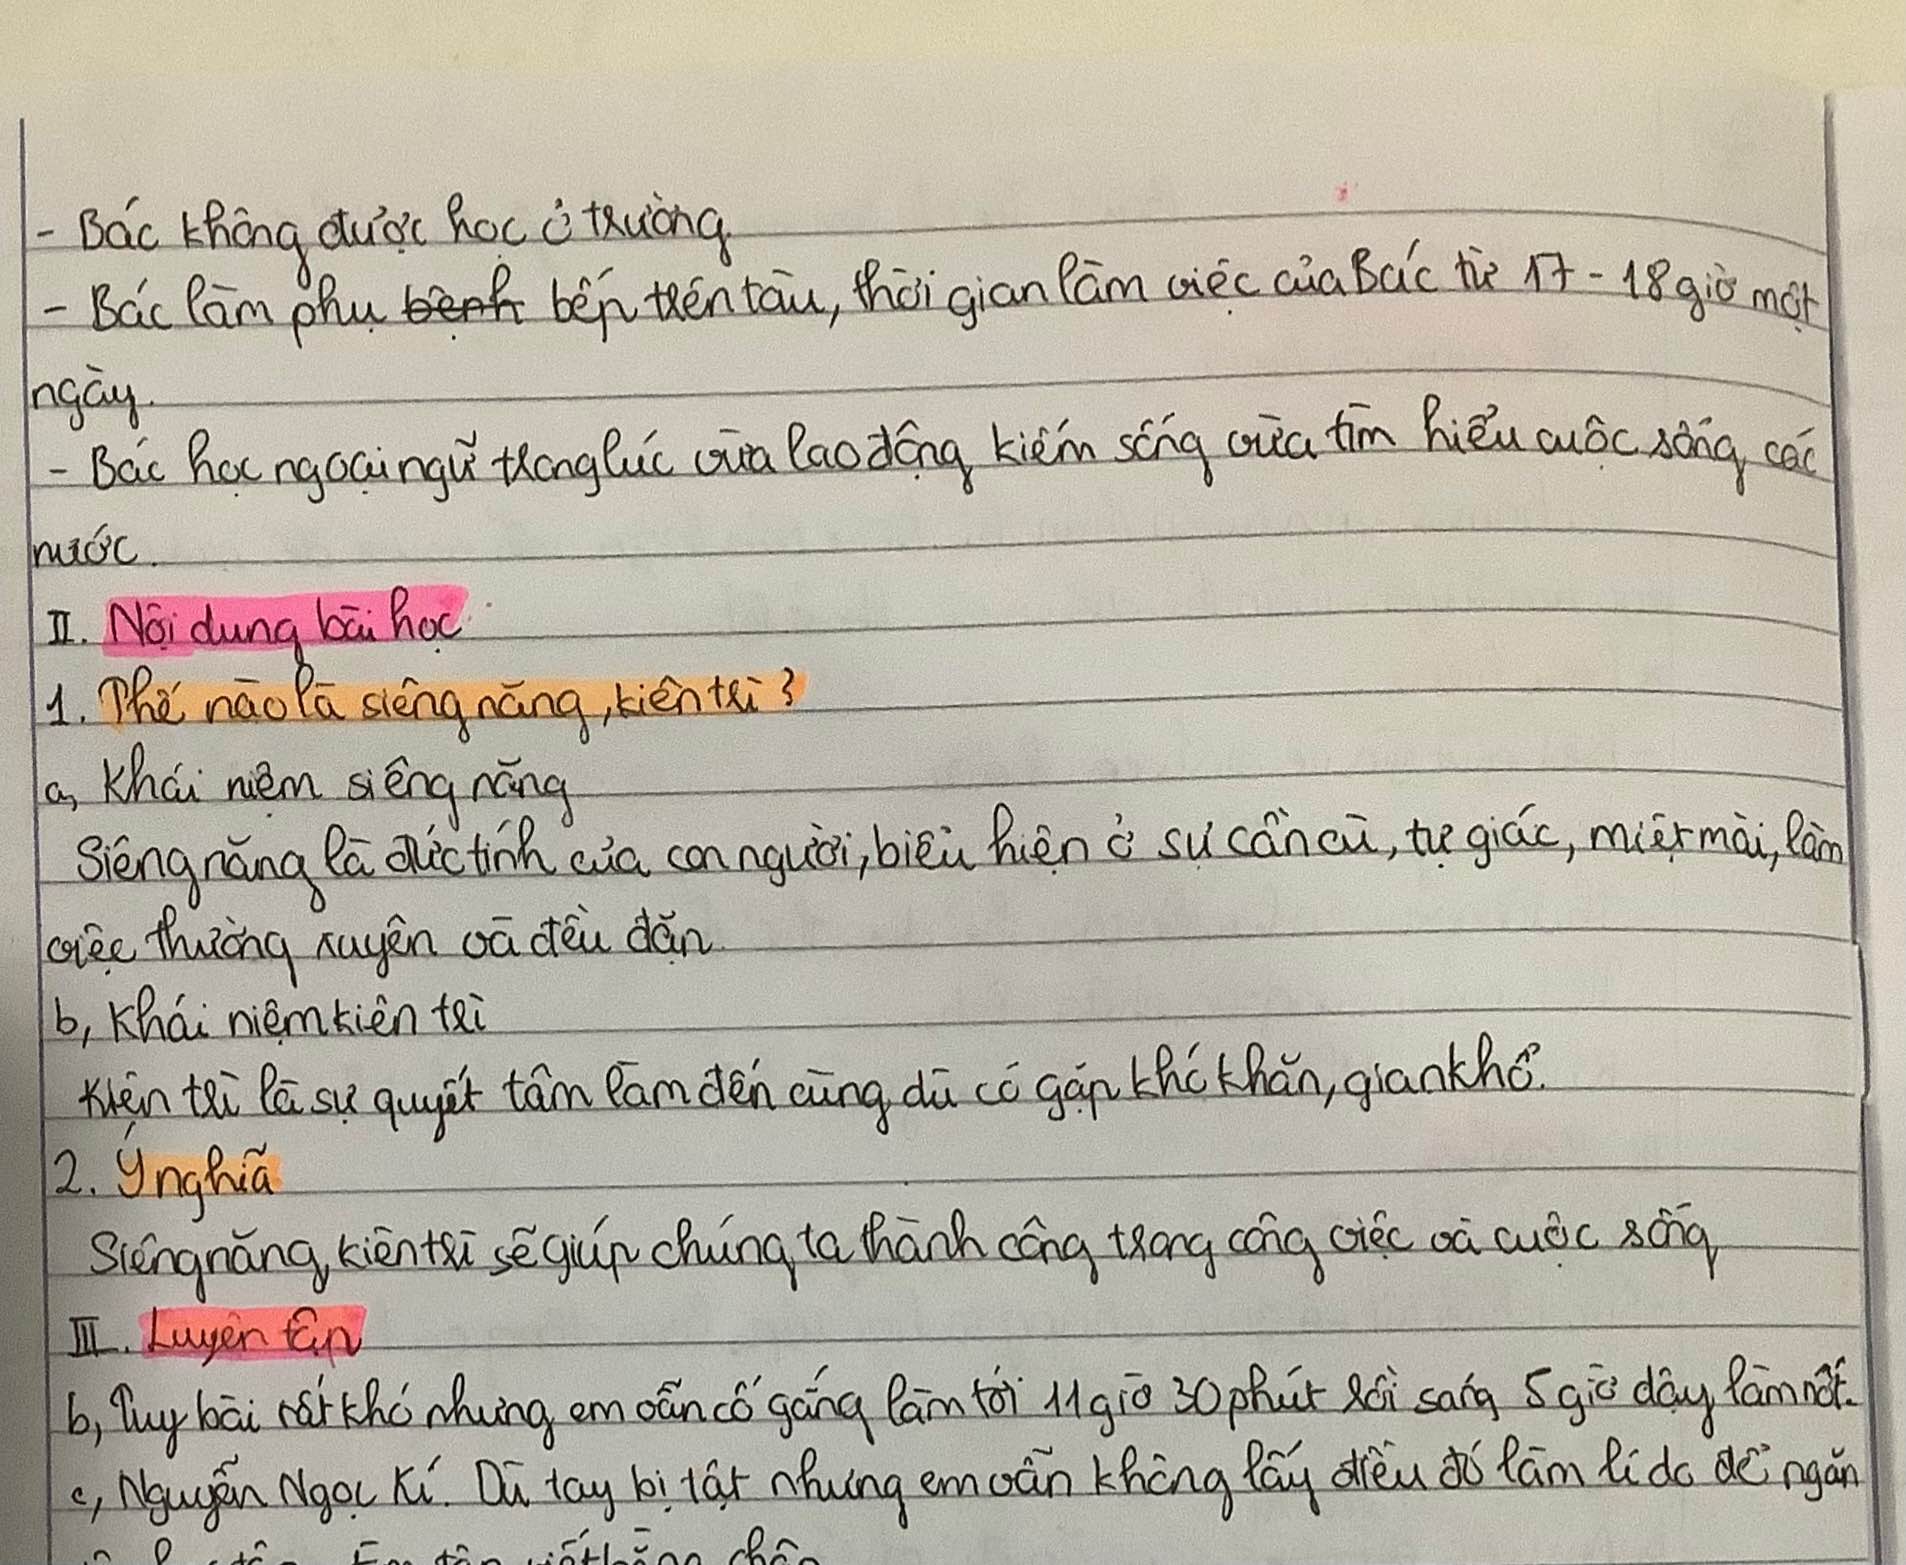 - Bác không được học ở trường
- Bác làm phụ bếp trên tàu, thời gian làm việc của Bác từ 17 - 18 giờ một
ngày.
- Bác học ngoại ngữ trong lúc vừa lao động kiếm sống vừa tìm hiểu cuộc sống các
nước.
II. Nội dung bài học
1. Thế nào là siêng năng, kiên trì?
a, Khái niệm siêng năng
Siêng năng là đức tính của con người, biểu hiện ở sự cần cù, tự giác, miệt mài, làm
việc thường xuyên và đều dặn
b, Khái niệm kiên trì
Kiên trì là sự quyết tâm làm đến cùng dù có gặp khó khăn, gian khổ.
2. Ý nghĩa
Siêng năng, kiên trì sẽ giúp chúng ta thành công trong công việc và cuộc sống
III. Luyện tập
b, Tuy bài rất khó nhưng em vẫn cố gắng làm tới 11 giờ 30 phút rồi sáng 5 giờ dậy làm nốt.
c, Nguyễn Ngọc Kí. Dù tay bị tật nhưng em vẫn không lấy điều đó làm lí do để ngăn